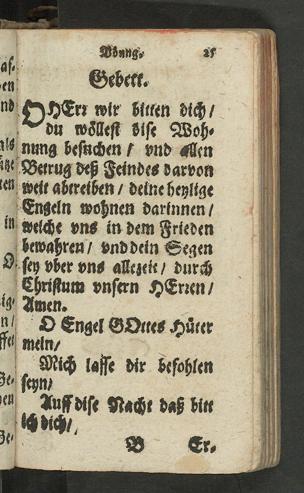 Vbung. 25
Gebett.
O HErr wir bitten dich/
du wöllest dise Woh-
nung besuchen / vnd allen
Betrug deß Feindes darvon
weit abtreiben / deine heylige
Engeln wohnen darinnen /
welche vns in dem Frieden
bewahren / vnd dein Segen
sey vber vns allezeit / durch
Christum vnsern HErren /
Amen.
O Engel GOttes Hüter
mein /
Mich lasse dir befohlen
seyn /
Auff dise Nacht daß bitt
ich dich /
B Er-